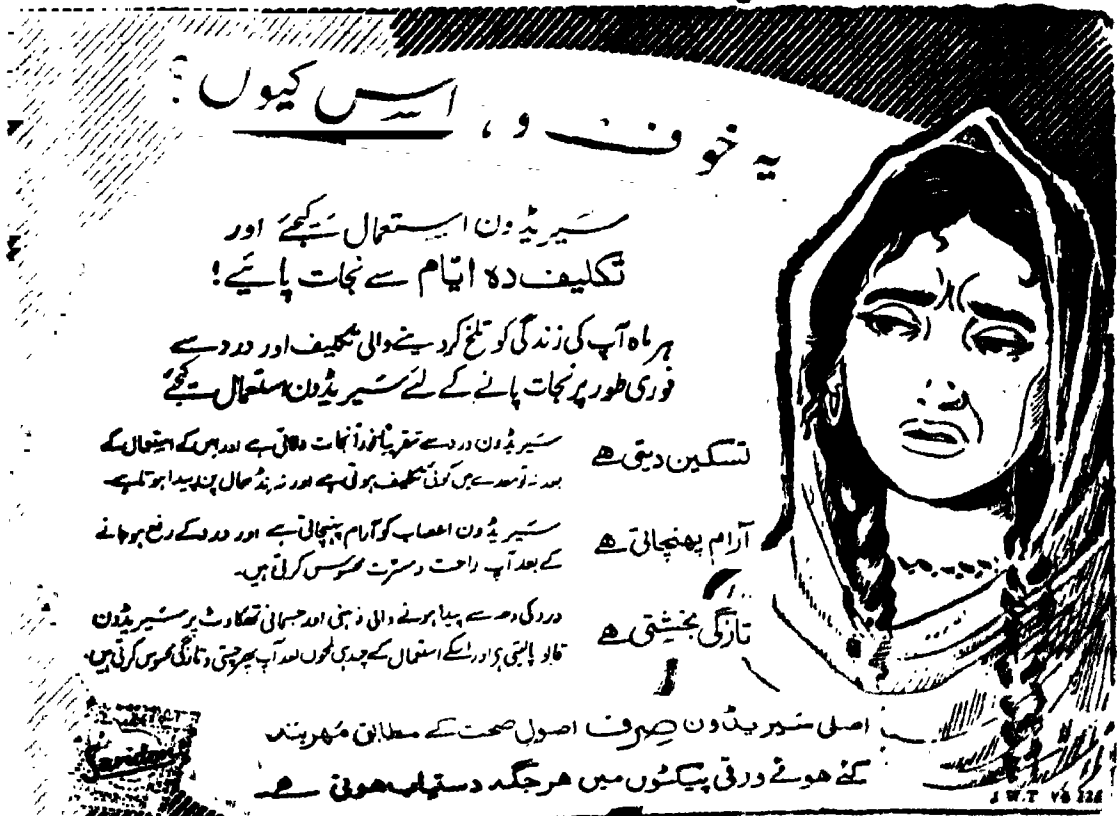 یہ خوف و ہراس کیوں؟
سَیریڈون استعمال کیجئے اور
تکلیف دہ ایّام سے نجات پائیے!
ہر ماہ آپ کی زندگی کو تلخ کر دینے والی تکلیف اور درد سے
فوری طور پر نجات پانے کے لئے سَیریڈون استعمال کیجئے
تسکین دیتی ہے
سَیریڈون درد سے تقریباً فوراً نجات دلاتی ہے اور اس کے استعمال کے
بعد نہ تو معدے میں کوئی تکلیف ہوتی ہے اور نہ پیدا ہوتا ہے۔
آرام پہنچاتی ہے
سَیریڈون اعصاب کو آرام پہنچاتی ہے اور درد کے رفع ہو جانے
کے بعد آپ راحت و مسرت محسوس کرتی ہیں۔
تازگی بخشتی ہے
درد کی وجہ سے پیدا ہونے والی ذہنی اور جسمانی تھکاوٹ پر سَیریڈون
قابو پالیتی ہے اور اسکے استعمال کے چند ہی لمحوں بعد آپ پھر چستی و تازگی محسوس کرتی ہیں۔
اصلی سَیریڈون صِرف اصولِ صحت کے مطابق مُہر بند
کئے ہوئے ورقی پیکٹوں میں ہر جگہ دستیاب ہوتی ہے۔
Saridon
J.W.T.